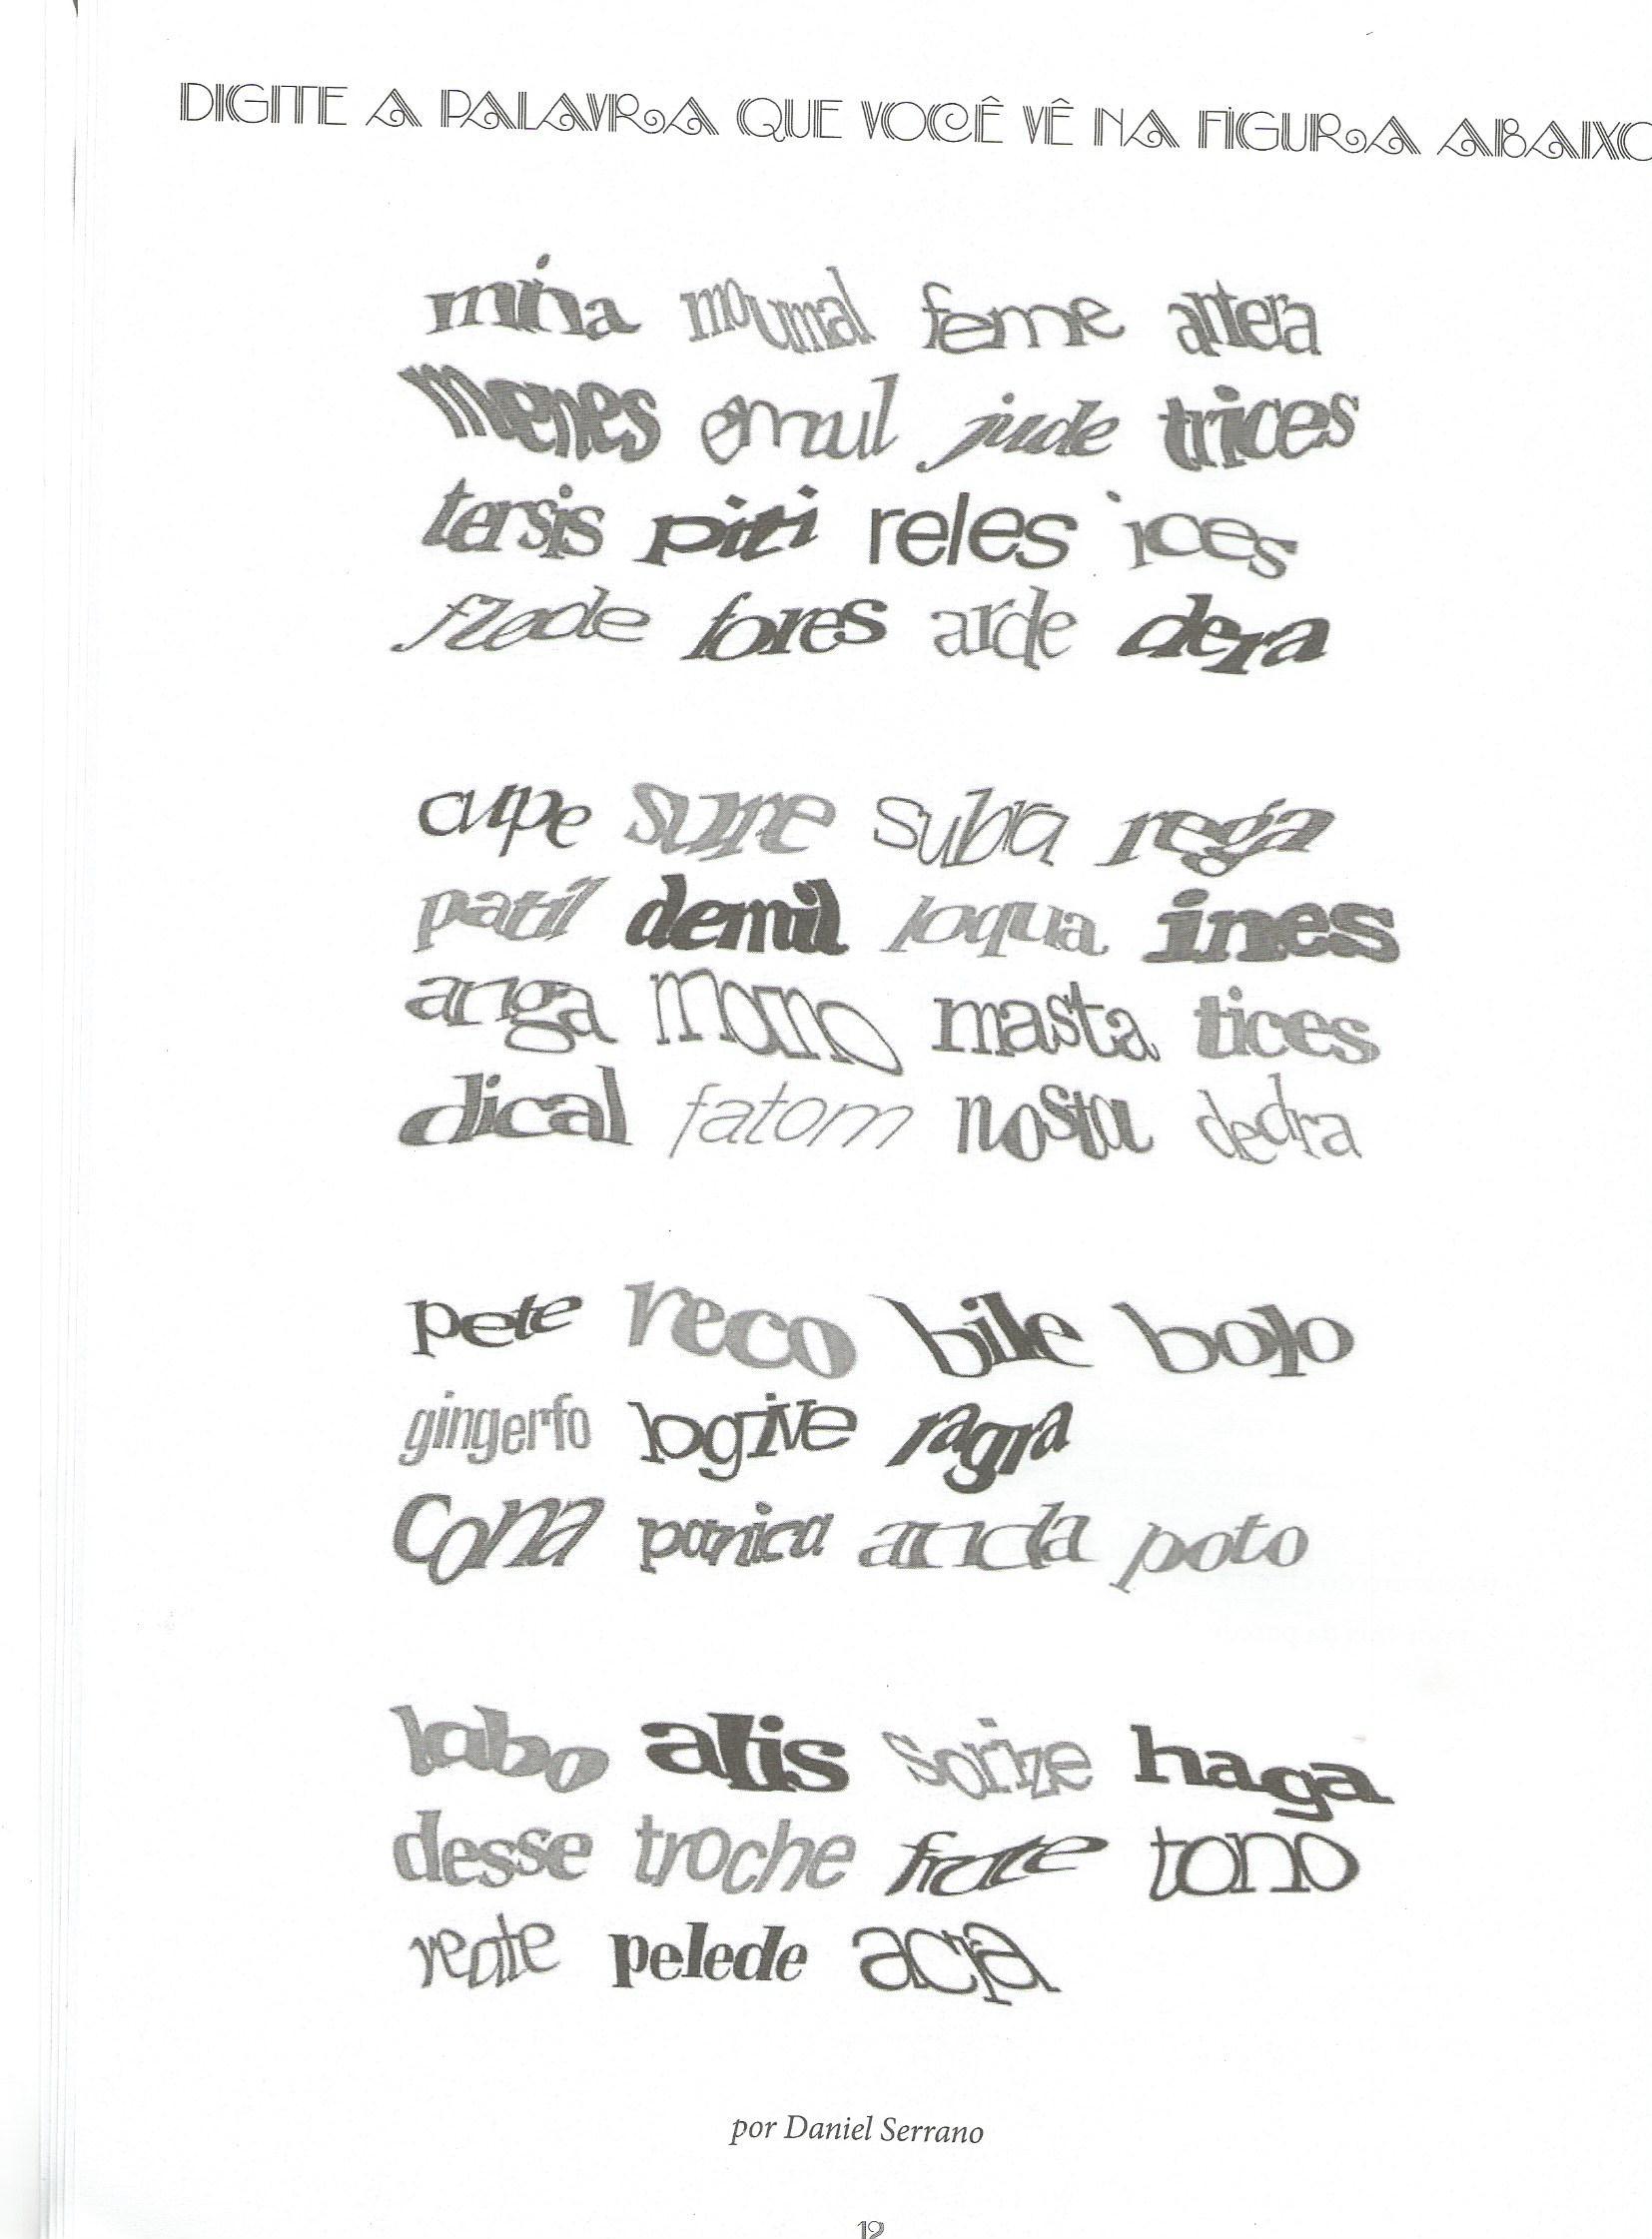 DIGITE A PALAVRA QUE VOCÊ VÊ NA FIGURA ABAIXO
miha moumal feme antera
menes emaul jude trices
tersis piti reles ices
flede fores arde dera
cupe sure subra rega
patil demil loqua ines
anga mono masta tices
dical fatom nosta dedra
pete reco bile bolo
gingerfo logive ragra
cona panica anda poto
labo alis sorize haga
desse troche frate tono
reate pelede acra
por Daniel Serrano
12